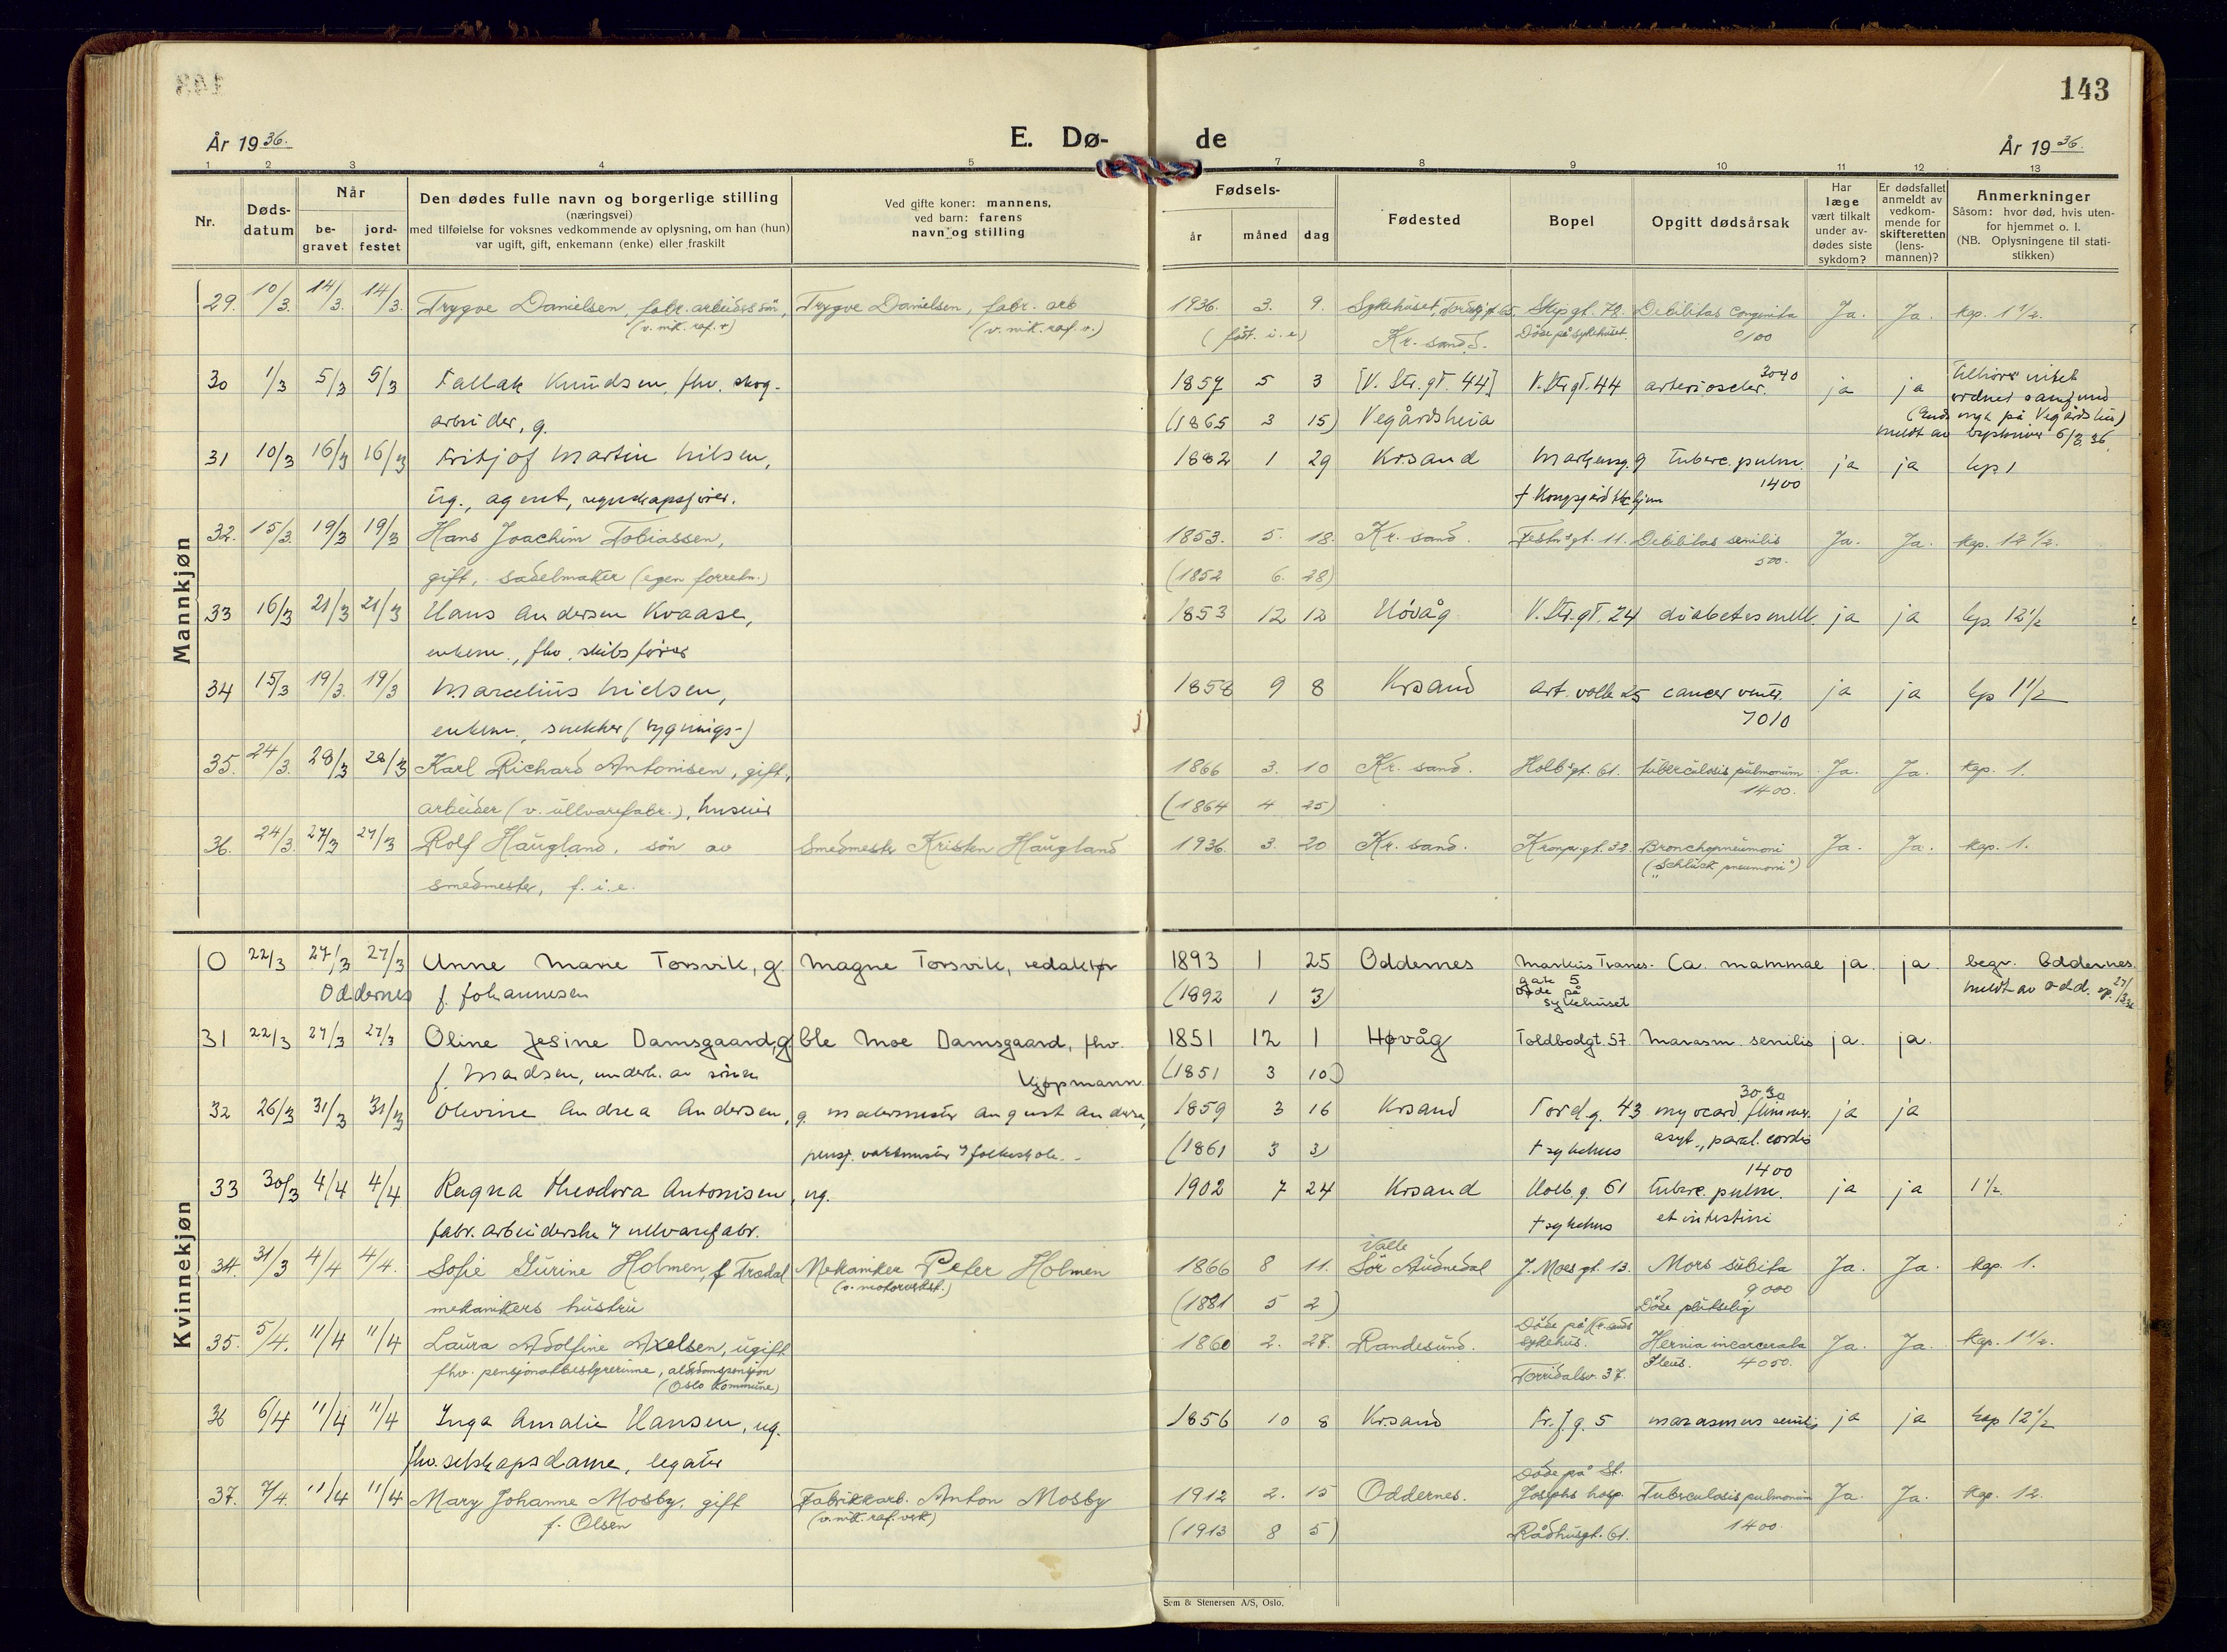 143
År 1936.
E. Dø-
de
År 1936.
1 2 3 4 5 7 8 9 10 11 12 13
Nr.
Døds-
datum
Når
be-
gravet
jord-
festet
Den dødes fulle navn og borgerlige stilling
(næringsvei)
med tilføielse for voksnes vedkommende av oplysning, om han (hun)
var ugift, gift, enkemann (enke) eller fraskilt
Ved gifte koner: mannens,
ved barn: farens
navn og stilling
Fødsels-
år måned dag
Fødested
Bopel
Opgitt dødsårsak
Har
læge
vært tilkalt
under av-
dødes siste
sykdom?
Er dødsfallet
anmeldt av
vedkom-
mende for
skifteretten
(lens-
mannen)?
Anmerkninger
Såsom: hvor død, hvis uten-
for hjemmet o. l.
(NB. Oplysningene til stati-
stikken)
Mannkjøn
29. 10/3. 14/3. 14/3. Trygve Danielsen, fabr. arbeiders sön, Trygve Danielsen, fabr. arb 1936. 3. 9. Sykehuset, Skipgt. 78. Debilitas congenita Ja. Ja. kap. 1 1/2.
(v. nik. raf. v) (v. nik. raf. v.) (föst. i. e) Kr. sand S. Döde på sykehuset.
30 1/3 5/3 5/3 Tallak Knudsen, fhv. skog- 1857 5 3 [V. Str. gt. 44] V. Str gt. 44 arterioscler. 3040 ja ja Tilhörer intet
arbeider, g. (1865 3 15) Vegårdsheia ordnet samfund
meldt av 6/3 36
31 10/3 16/3 16/3 Fritjof Martin Nilsen, 1882 1 29 Krsand Markensg. 9 Tuberc. pulm. ja ja kp 1
ug., agent, regnskapsfører. † Kongsgård 1400
32. 15/3. 19/3 19/3 Hans Joachim Tobiassen, 1853. 5. 18. Kr. sand. Festngt. 11. Debilitas senilis Ja. Ja. kap. 12 1/2.
gift, sadelmaker (egen forretn.) (1852 6. 28) 500.
33 16/3 21/3 21/3 Hans Andersen Kvaase, 1853 12 12 Høvåg V. Str. gt. 24 diabetes mell. ja ja kp. 12 1/2
enkem., fhv. skibsfører
34 15/3 19/3. 19/3 Marcelius Nielsen, 1858 9 8 Krsand Art. volle 25 cancer ventr. ja ja kp 1 1/2
enkem., snekker (bygnings-) 7010
35. 24/3. 28/3 28/3 Karl Richard Antonisen, gift, 1866 3. 10 Kr. sand. Holbsgt. 61. tuberculosis pulmonum Ja. Ja. kap. 1.
arbeider (v. ullvarefabr.), huseier (1864 4 25) 1400.
36. 24/3. 27/3 27/3 Rolf Haugland, sön av Smedmester Kristen Haugland 1936. 3. 20 Kr. sand. Kronpr. gt. 32. Bronchopneumoni Ja. Ja. kap. 1.
smedmester, f. i. e. („Schluck pneumoni")
Kvinnekjøn
0 22/3 27/3 27/3 Unne Marie Torsvik, g. Magne Torsvik, redaktør 1893 1 25 Oddernes Markus Tranes- Ca. mammae ja. ja. begr. Oddernes.
Oddernes f. Johannesen (1892 1 3) gate 5 døde på sykehuset meldt av Odd. sp. 27/3 36
31 22/3 27/3 27/3 Oline Jesine Damsgaard, g. Ole Moe Damsgaard, fhv. 1851 12 1 Høvåg Toldbodgt. 57 Marasm. senilis ja. ja.
f. Madsen, underh. av sönen kjøpmann. (1851 3 10)
32 26/3 31/3 31/3 Olevine Andrea Andersen, g. malermester August Andersen, 1859 3 16 Krsand Tord.g. 43 myocard. flimmer. 3030 ja ja
pensj. vaktmester v folkeskole. (1861 3 3) † sykehus asyt., paral. cordis
33 30/3 4/4 4/4 Ragna Theodora Antonisen, ug. 1902 7 24 Krsand Holb. g. 61 tuberc. pulm. 1400 ja ja 1 1/2.
fabr. arbeiderske v ullvarefabr. † sykehus et intestini
34. 31/3 4/4 4/4. Sofie Gurine Holmen, f. Trædal Mekaniker Peter Holmen 1866 8 11. Valle Sör Audnedal J. Moes gt. 13. Mors subita Ja. Ja. kap. 1.
mekanikers hustru (v. motorverkst.) (1881 5 2) 9000
Döde plutselig
35. 5/4. 11/4 11/4 Laura Adolfine Axelsen, ugift 1860 2. 27. Randesund. Döde på Kr.sands sykehus. Hernia incarcerata Ja. Ja. kap. 1 1/2.
fhv. pensjonatbestyrerinne, alderdomspensjon Torridalsv. 37. Ileus. 4050.
(Oslo Kommune)
36 6/4 11/4 11/4 Inga Amalie Hansen, ug. 1856 10 8 Krsand Fr. J. g. 5 marasmus senilis ja ja kap 12 1/2
fhv. selskapsdame, legater
37. 7/4. 11/4 11/4 Mary Johanne Mosby, gift Fabrikkarb. Anton Mosby 1912 2. 15 Oddernes. Döde på St. Josephs hosp. Tuberculosis pulmonum Ja. Ja. kap. 12.
f. Olsen (v. nik. raf. verk) (1913 8 5) Rådhusgt. 61. 1400.
Sem & Stenersen A/S, Oslo.